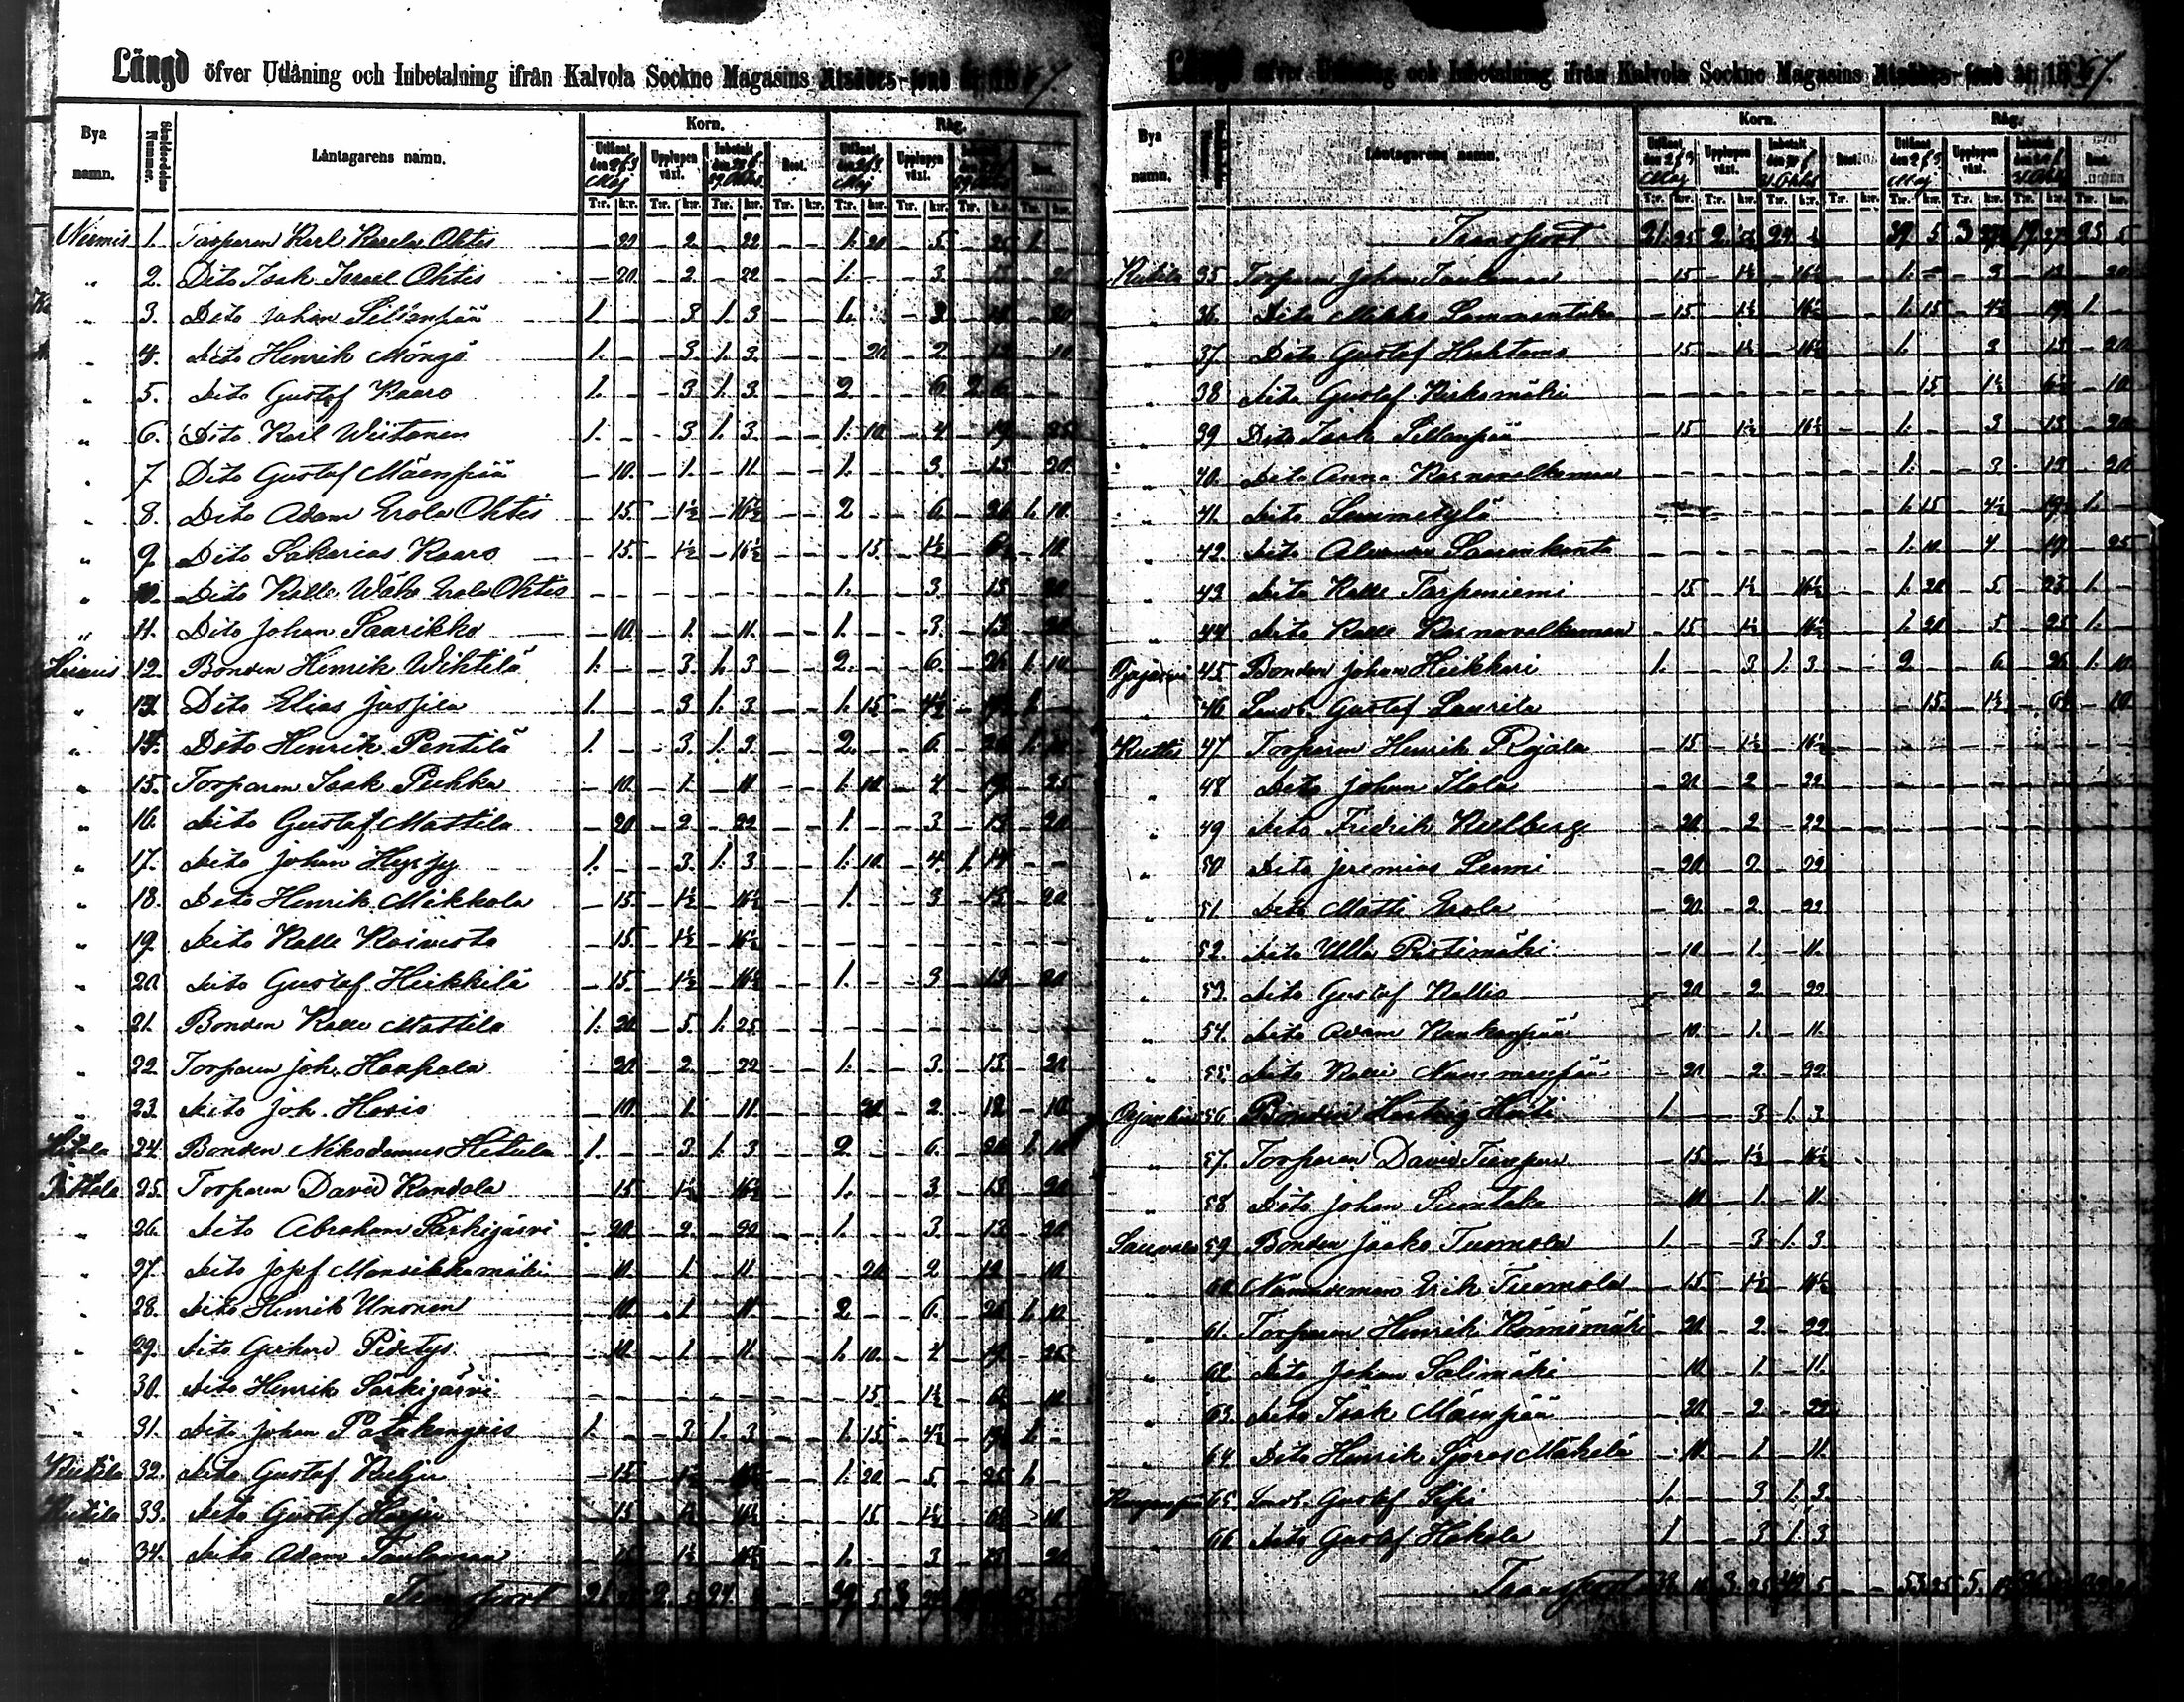 Längd öfver Utlåning och Inbetalning ifrån Kalvola Sockne Magasins Utsädes-fond år 1867.
Bya namn. Skuldsedelns Nummer. Låntagarens namn. Korn. Råg.
Utlånt den 2 & 3 Maj Upplupen växt. Inbetalt Rest. Utlånt den 2 & 3 Maj Upplupen växt.
T:r. k:r. T:r. k:r. T:r. k:r. T:r. k:r. T:r. k:r. T:r. k:r. T:r. k:r. T:r. k:r.
Niemis 1. Torparen Karl Ohtis — 20 — 2 — 22 1. 20 — 5 — 25 1. —
" 2. Dito Isak Israel Ohtis — 20 — 2 — 22 1. — — 3 — 20
" 3. Dito Johan Sillanpää 1. — — 3 1. 3 — — 1. — — 3 — 20
" 4. Dito Henrik Möngö 1. — — 3 1. 3 — — — 20 — 2 — 12 — 10
" 5. Dito Gustaf Kaaro 1. — — 3 1. 3 — — 2 — — 6 2 6 — —
" 6. Dito Karl Wiitanen 1. — — 3 1. 3 — — 1. 10 — 4 — 19 — 25
" 7. Dito Gustaf Mäenpää — 10 — 1 — 11 — — 1. — — 3 — 13 — 20
" 8. Dito Adam Erola Ohtis — 15 — 1½ — 16½ — — 2 — — 6 — 26 1. 10
" 9. Dito Sakarias Kaaro — 15 — 1½ — 16½ — — — 15 — 1½ — 6½ — 10
" 10. Dito Kalle Wähä Erola Ohtis — — — — — — — — 1. — — 3 — 13 — 20
" 11. Dito Johan Saarikko — 10 — 1 — 11 — — 1. — — 3 — 13 — 20
12. Bonden Henrik Wihtilä 1. — — 3 1. 3 — — 2 — — 6 — 26 1. 10
" 13. Dito Elias Jussila 1. — — 3 1. 3 — — 1. 15 — 4½ — 19½ 1. —
" 14. Dito Henrik Pentilä 1. — — 3 1. 3 — — 2 — — 6 — 26 1. 10
" 15. Torparen Isak Puhka — 10 — 1 — 11 — — 1. 10 — 4 — 19 — 25
" 16. Dito Gustaf Mattila — 20 — 2 — 22 — — 1. — — 3 — 13 — 20
" 17. Dito Johan Hyrsy 1. — — 3 1. 3 — — 1. 10 — 4 1. 14 — —
" 18. Dito Henrik Mikkola — 15 — 1½ — 16½ — — 1. — — 3 — 13 — 20
" 19. Dito Kalle Koivisto — 15 — 1½ — 16½ — — — — — — — — — —
" 20. Dito Gustaf Heikkilä — 15 — 1½ — 16½ — — 1. — — 3 — 13 — 20
" 21. Bonden Kalle Mattila 1. 20 — 5 1. 25 — — — — — — — — — —
" 22. Torparen Joh. Haapala — 20 — 2 — 22 — — 1. — — 3 — 13 — 20
" 23. Dito Joh. Hosio — 10 — 1 — 11 — — — 20 — 2 — 12 — 10
24. Bonden Nikodemus Hietula 1. — — 3 1. 3 — — 2 — — 6 — 26 1. 10
25. Torparen David Kandola — 15 — 1½ — 16½ — — 1. — — 3 — 13 — 20
" 26. Dito Abraham Särkijärvi — 20 — 2 — 22 — — 1. — — 3 — 13 — 20
" 27. Dito Josef Mansikkamäki — 10 — 1 — 11 — — — 20 — 2 — 12 — 10
" 28. Dito Henrik Unonen — 10 — 1 — 11 — — 2 — — 6 — 26 1. 10
" 29. Dito Gerhard — 10 — 1 — 11 — — 1. 10 — 4 — 19 — 25
" 30. Dito Henrik Särkijärvi — — — — — — — — — 15 — 1½ — 6½ — 10
" 31. Dito Johan Patakangas 1. — — 3 1. 3 — — 1. 15 — 4½ — 19½ 1. —
Kutila 32. Dito Gustaf Kulju — 15 — 1½ — 16½ — — 1. 20 — 5 — 25 1. —
Kutila 33. Dito Gustaf Harju — 15 — 1½ — 16½ — — — 15 — 1½ — 6½ — 10
" 34. Dito Adam Taulaman — 15 — 1½ — 16½ — — 1. — — 3 — 13 — 20
Transport 21. 25 2. 39 5 3
Längd öfver Utlåning och Inbetalning ifrån Kalvola Sockne Magasins Utsädes-fond år 1867.
Bya namn. Låntagarens namn. Korn. Råg.
Utlånt den 2 & 3 Maj Upplupen växt. Inbetalt Rest. Utlånt den 2 & 3 Maj Upplupen växt.
T:r. k:r. T:r. k:r. T:r. k:r. T:r. k:r. T:r. k:r. T:r. k:r. T:r. k:r. T:r. k:r.
Transport 21. 25 2. 39 5 3 25 5
Kutila 35. Torparen Johan Taulaman — 15 — 1½ — 16½ — — 1. — — 3 — 13 — 20
" 36. Dito Mikko Lammentaka — 15 — 1½ — 16½ — — 1. 15 — 4½ — 19½ 1. —
" 37. Dito Gustaf Huhtamo — 15 — 1½ — 16½ — — 1. — — 3 — 13 — 20
" 38. Dito Gustaf Kiskomäki — — — — — — — — — 15 — 1½ — 6½ — 10
" 39. Dito Isak Sillanpää — 15 — 1½ — 16½ — — 1. — — 3 — 13 — 20
" 40. Dito Anna — — — — — — — — 1. — — 3 — 13 — 20
" 41. Dito Lammetylä — — — — — — 1. 15 — 4½ — 19½ 1. —
" 42. Dito Saarenkanta — — — — — — — — 1. 10 — 4 — 19 — 25
" 43. Dito Kalle Tarpeniemi — 15 — 1½ — 16½ — — 1. 20 — 5 — 25 1. —
" 44. Dito Kalle — 15 — 1½ — 16½ — — 1. 20 — 5 — 25 1. —
45. Bonden Johan Heikkari 1. — — 3 1. 3 — — 2 — — 6 — 26 1. 10
" 46. Gustaf Laurila — 15 — 1½ — 6½ — 10
47. Torparen Henrik Rajala — 15 — 1½ — 16½ — — — — — — — —
" 48. Dito Johan Itola — 20 — 2 — 22 — — — — — — — —
" 49. Dito Fredrik Kullberg — 20 — 2 — 22 — — — — — — — —
" 50. Dito Jeremias Lemi — 20 — 2 — 22
" 51. Dito Matti Erola — 20 — 2 — 22
" 52. Dito Ulla — 10 — 1 — 11
" 53. Dito Gustaf Kallio — 20 — 2 — 22
" 54. Dito Adam Kankanpää — 10 — 1 — 11
" 55. Dito Kalle Nummenpää — 20 — 2 — 22
56. Bonden Hedvig 1. — — 3 1. 3
" 57. Torparen David — 15 — 1½ — 16½
" 58. Dito Johan — 10 — 1 — 11
Sauvala 59. Bonden Jaako Tuomola 1. — — 3 1. 3
" 60. Nämndeman Erik Tuomola — 15 — 1½ — 16½
" 61. Torparen Henrik — 20 — 2 — 22
" 62. Dito Johan Salimäki — 10 — 1 — 11
" 63. Dito Isak Mäenpää — 20 — 2 — 22
" 64. Dito Henrik Mäkelä — 10 — 1 — 11
65. Gustaf 1. — — 3 1. 3
" 66. Dito Gustaf Hakola 1. — — 3 1. 3
Transport 53 25 5